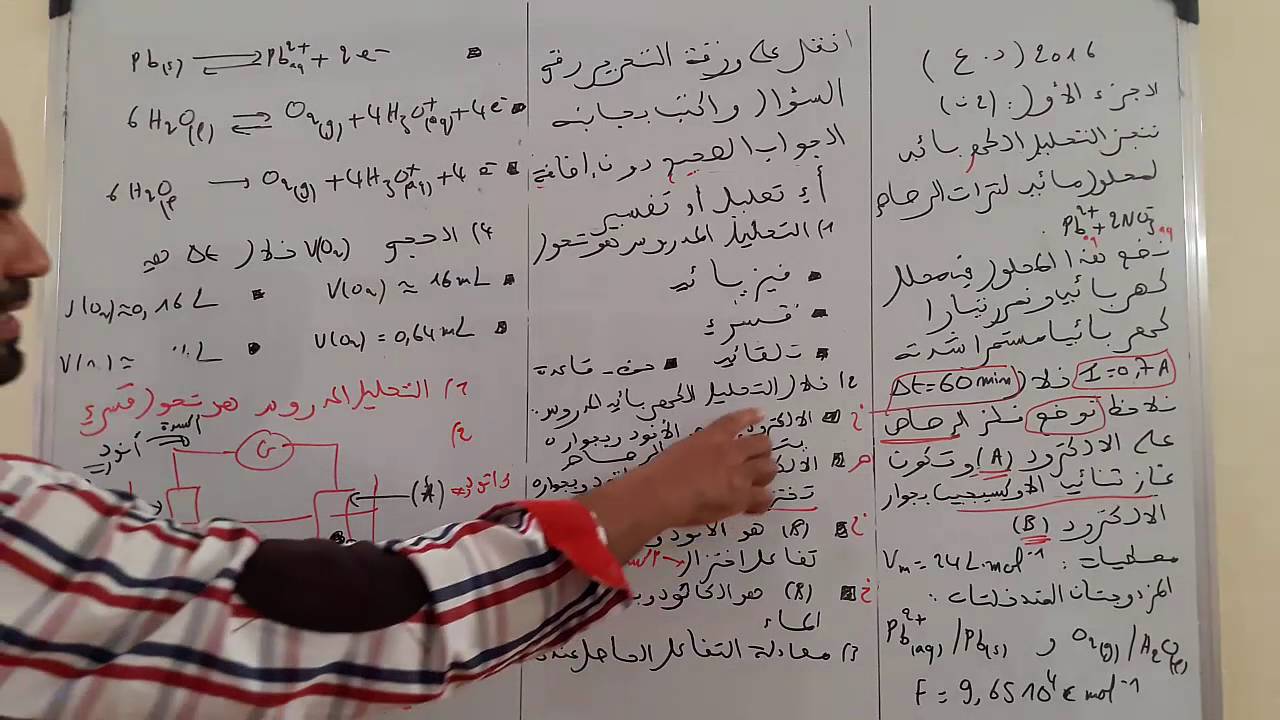 2016 (د.ع)
الجزء الأول: (2ن)
ننجز التحليل الكهربائي
لمحلول مائي لنترات الرصاص
Pb²⁺aq + 2NO₃⁻aq
نضع هذا المحلول في محلل
كهربائي ونمرر تيارا
كهربائيا مستمرا شدته
I = 0,7A خلال Δt = 60 min
نلاحظ توضع فلز الرصاص
على الالكترود (A) وتكون
غاز ثنائي الأوكسيجين بجوار
الالكترود (B)
معطيات: Vm = 24 L.mol⁻¹
المزدوجتان المتدخلتان:
Pb²⁺(aq)/Pb(s) و O₂(g)/H₂O(l)
F = 9,65 10⁴ C mol⁻¹
انقل على ورقة التحرير رقم
السؤال واكتب بجانبه
الجواب الصحيح دون إضافة
أي تعليل أو تفسير
1) التحليل المدروس هو تحول
▪ فيزيائي
▪ قسري
▪ تلقائي ▪ حمض - قاعدة
2) خلال التحليل الكهربائي المدروس:
خ ▪ الالكترود الأنود وبجواره
الرصاص
ص ▪ وبجواره
تختزل
خ ▪ (B) هو الأنود
تفاعل اختزال
خ ▪ (B) هو الكاثود
الماء
3) معادلة التفاعل الحاصل عند
▪ Pb(s) ⇌ Pb²⁺aq + 2e⁻
▪ 6H₂O(l) ⇌ O₂(g) + 4H₃O⁺(aq) + 4e⁻
▪ 6H₂O(l) → O₂(g) + 4H₃O⁺(aq) + 4e⁻
4) الحجم V(O₂) خلال Δt هو
▪ V(O₂) ≈ 16 mL ▪ V(O₂) ≈ 0,16L
▪ V(O₂) = 0,64 mL ▪
1) التحليل المدروس هو تحول قسري
2)
G
أنود
(A)